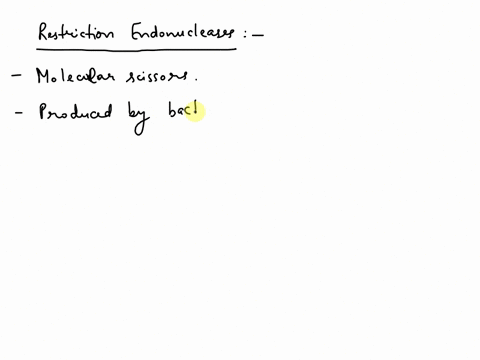 Restriction Endonucleases :-
- Molecular scissors.
- Produced by bact